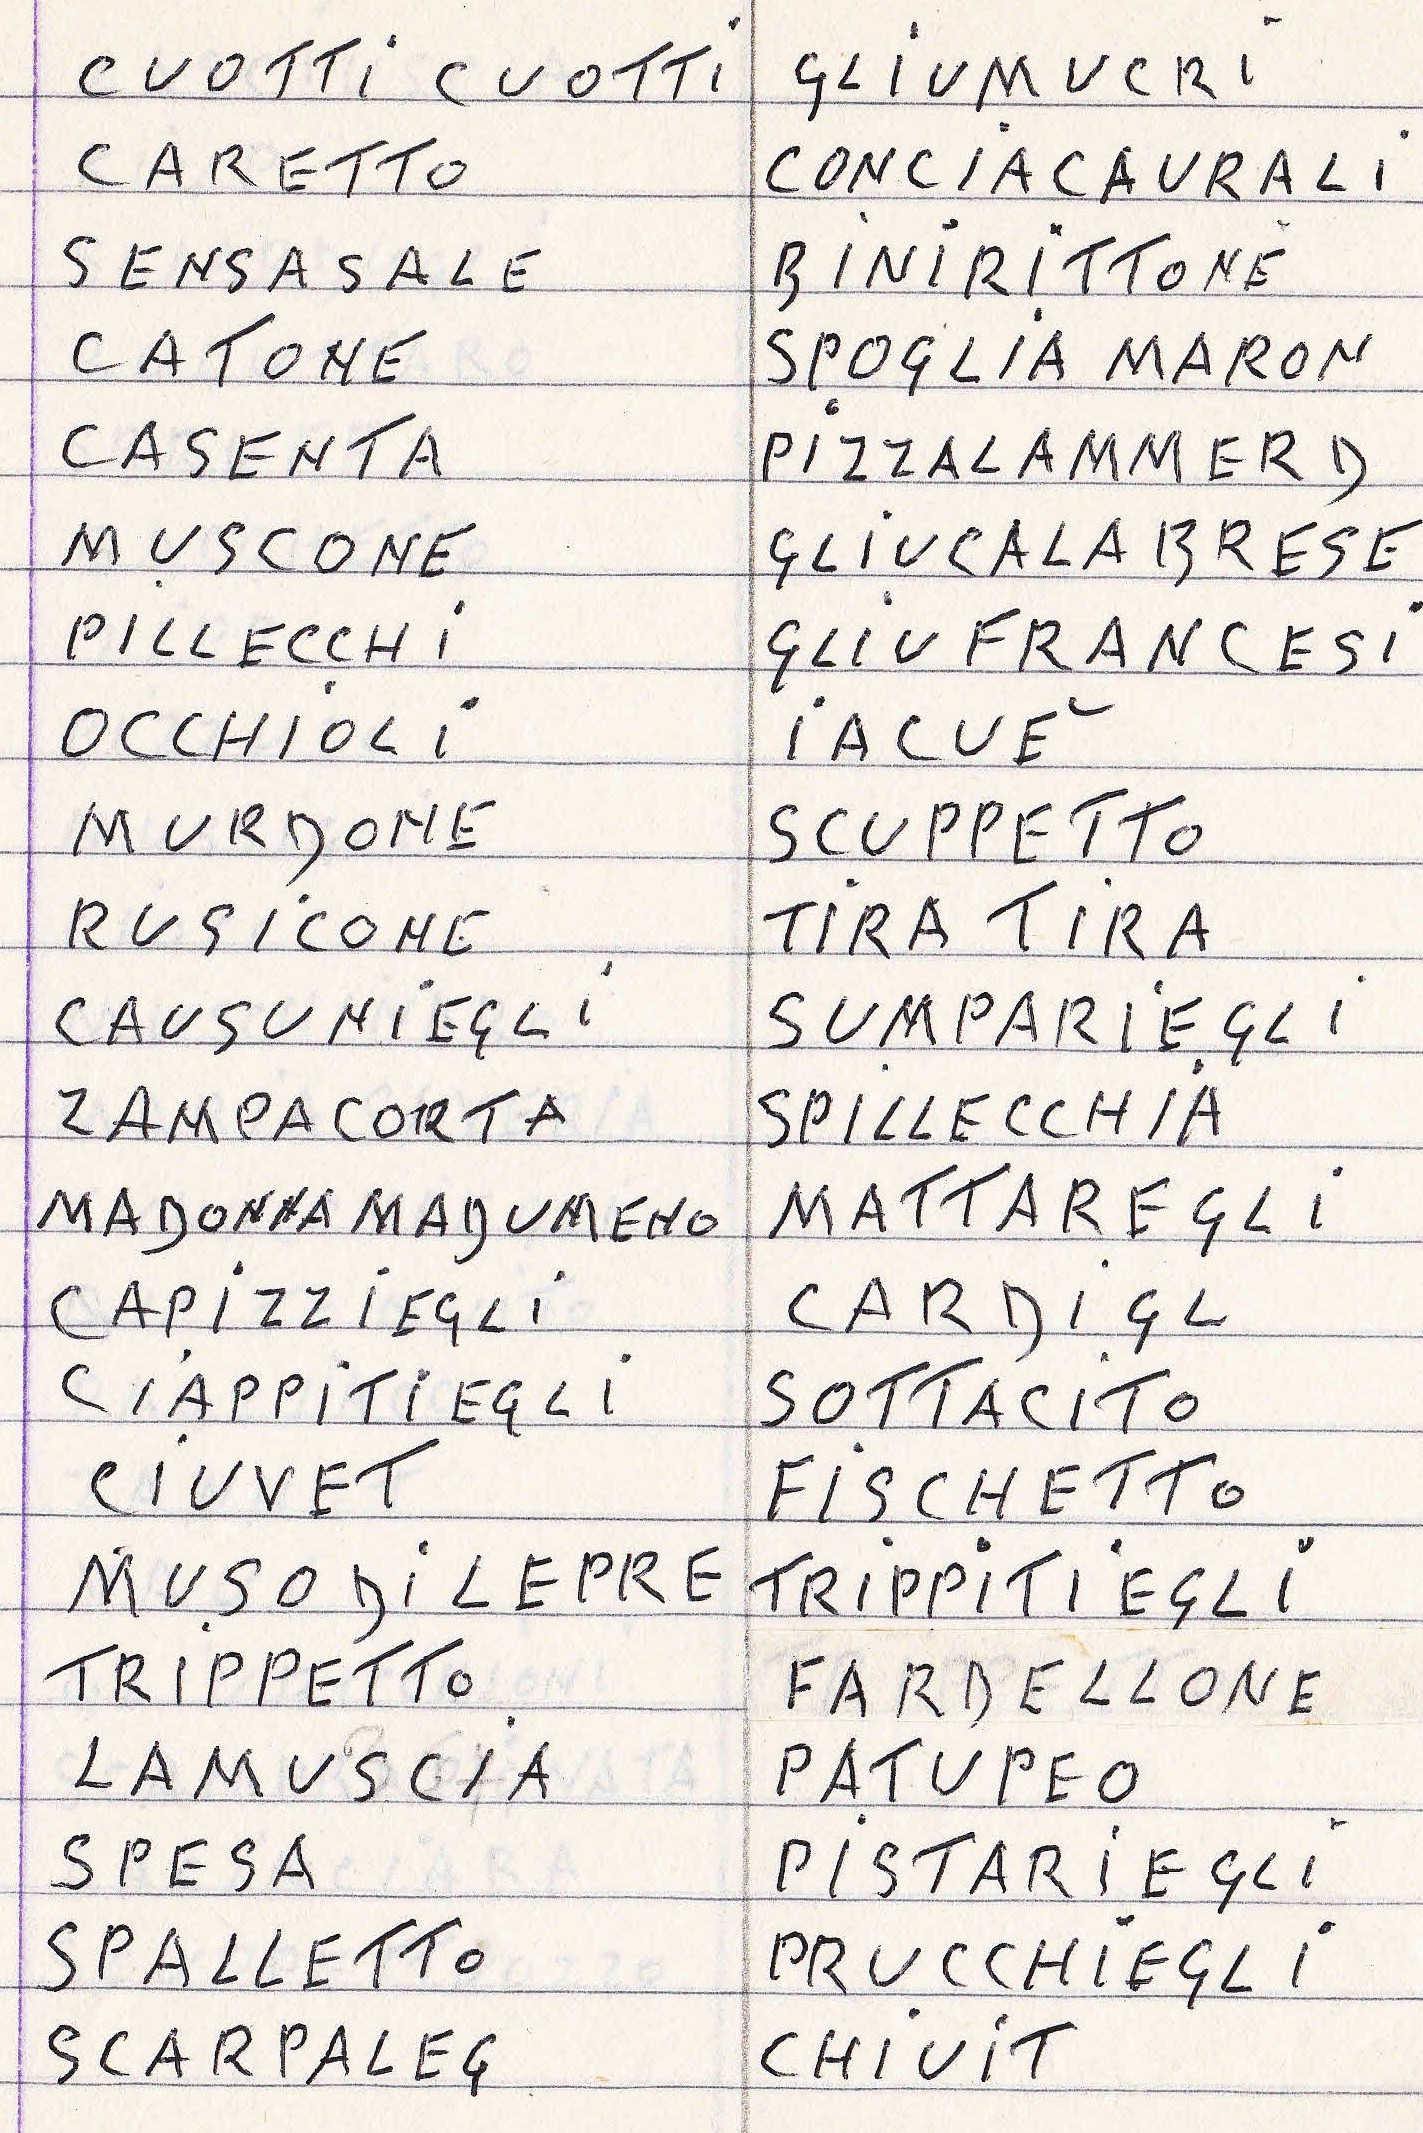 CUOTTI CUOTTI
CARETTO
SENSASALE
CATONE
CASENTA
MUSCONE
PILLECCHI
OCCHIOLI
MURDONE
RUSICONE
CAUSUNIEGLI
ZAMPACORTA
MADONNAMADUMENO
CAPIZZIEGLI
CIAPPITIEGLI
CIUVET
MUSO DI LEPRE
TRIPPETTO
LAMUSCIA
SPESA
SPALLETTO
SCARPALEG
GLIUMUCRI
CONCIACAURALI
BINIRITTONE
SPOGLIA MARON
PIZZALAMMERD
GLIUCALABRESE
GLIU FRANCESI
IACUÈ
SCUPPETTO
TIRA TIRA
SUMPARIEGLI
SPILLECCHIA
MATTAREGLI
CARDIGL
SOTTACITO
FISCHETTO
TRIPPITIEGLI
FARDELLONE
PATUPEO
PISTARIEGLI
PRUCCHIEGLI
CHIUIT